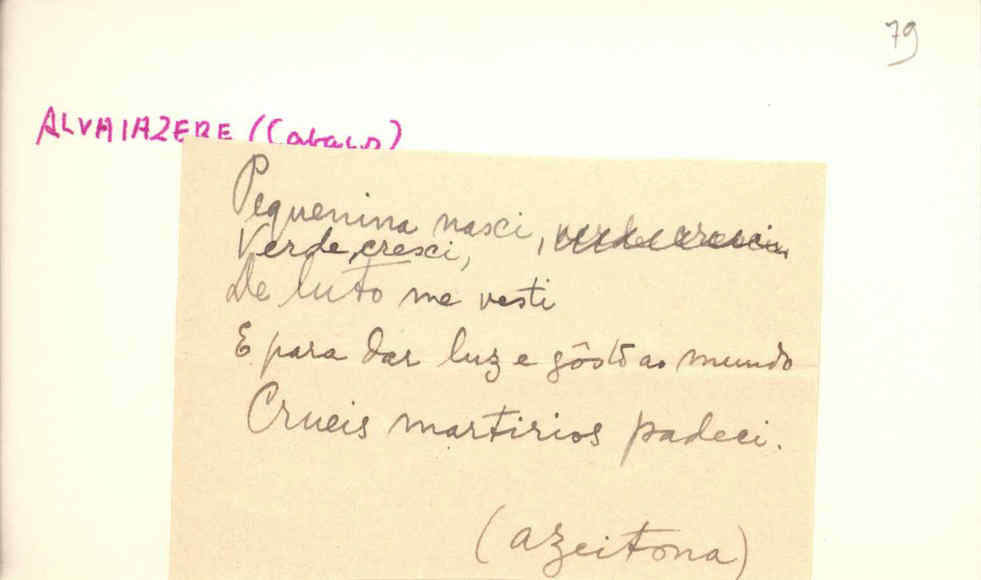 79
ALVAIAZERE (Cabaço)
Pequenina nasci, verde cresci,
Verde cresci,
De luto me vesti
E para dar luz e gôsto ao mundo
Crueis martirios padeci.
(azeitona)